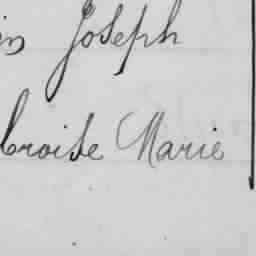 in Joseph
Croise Marie